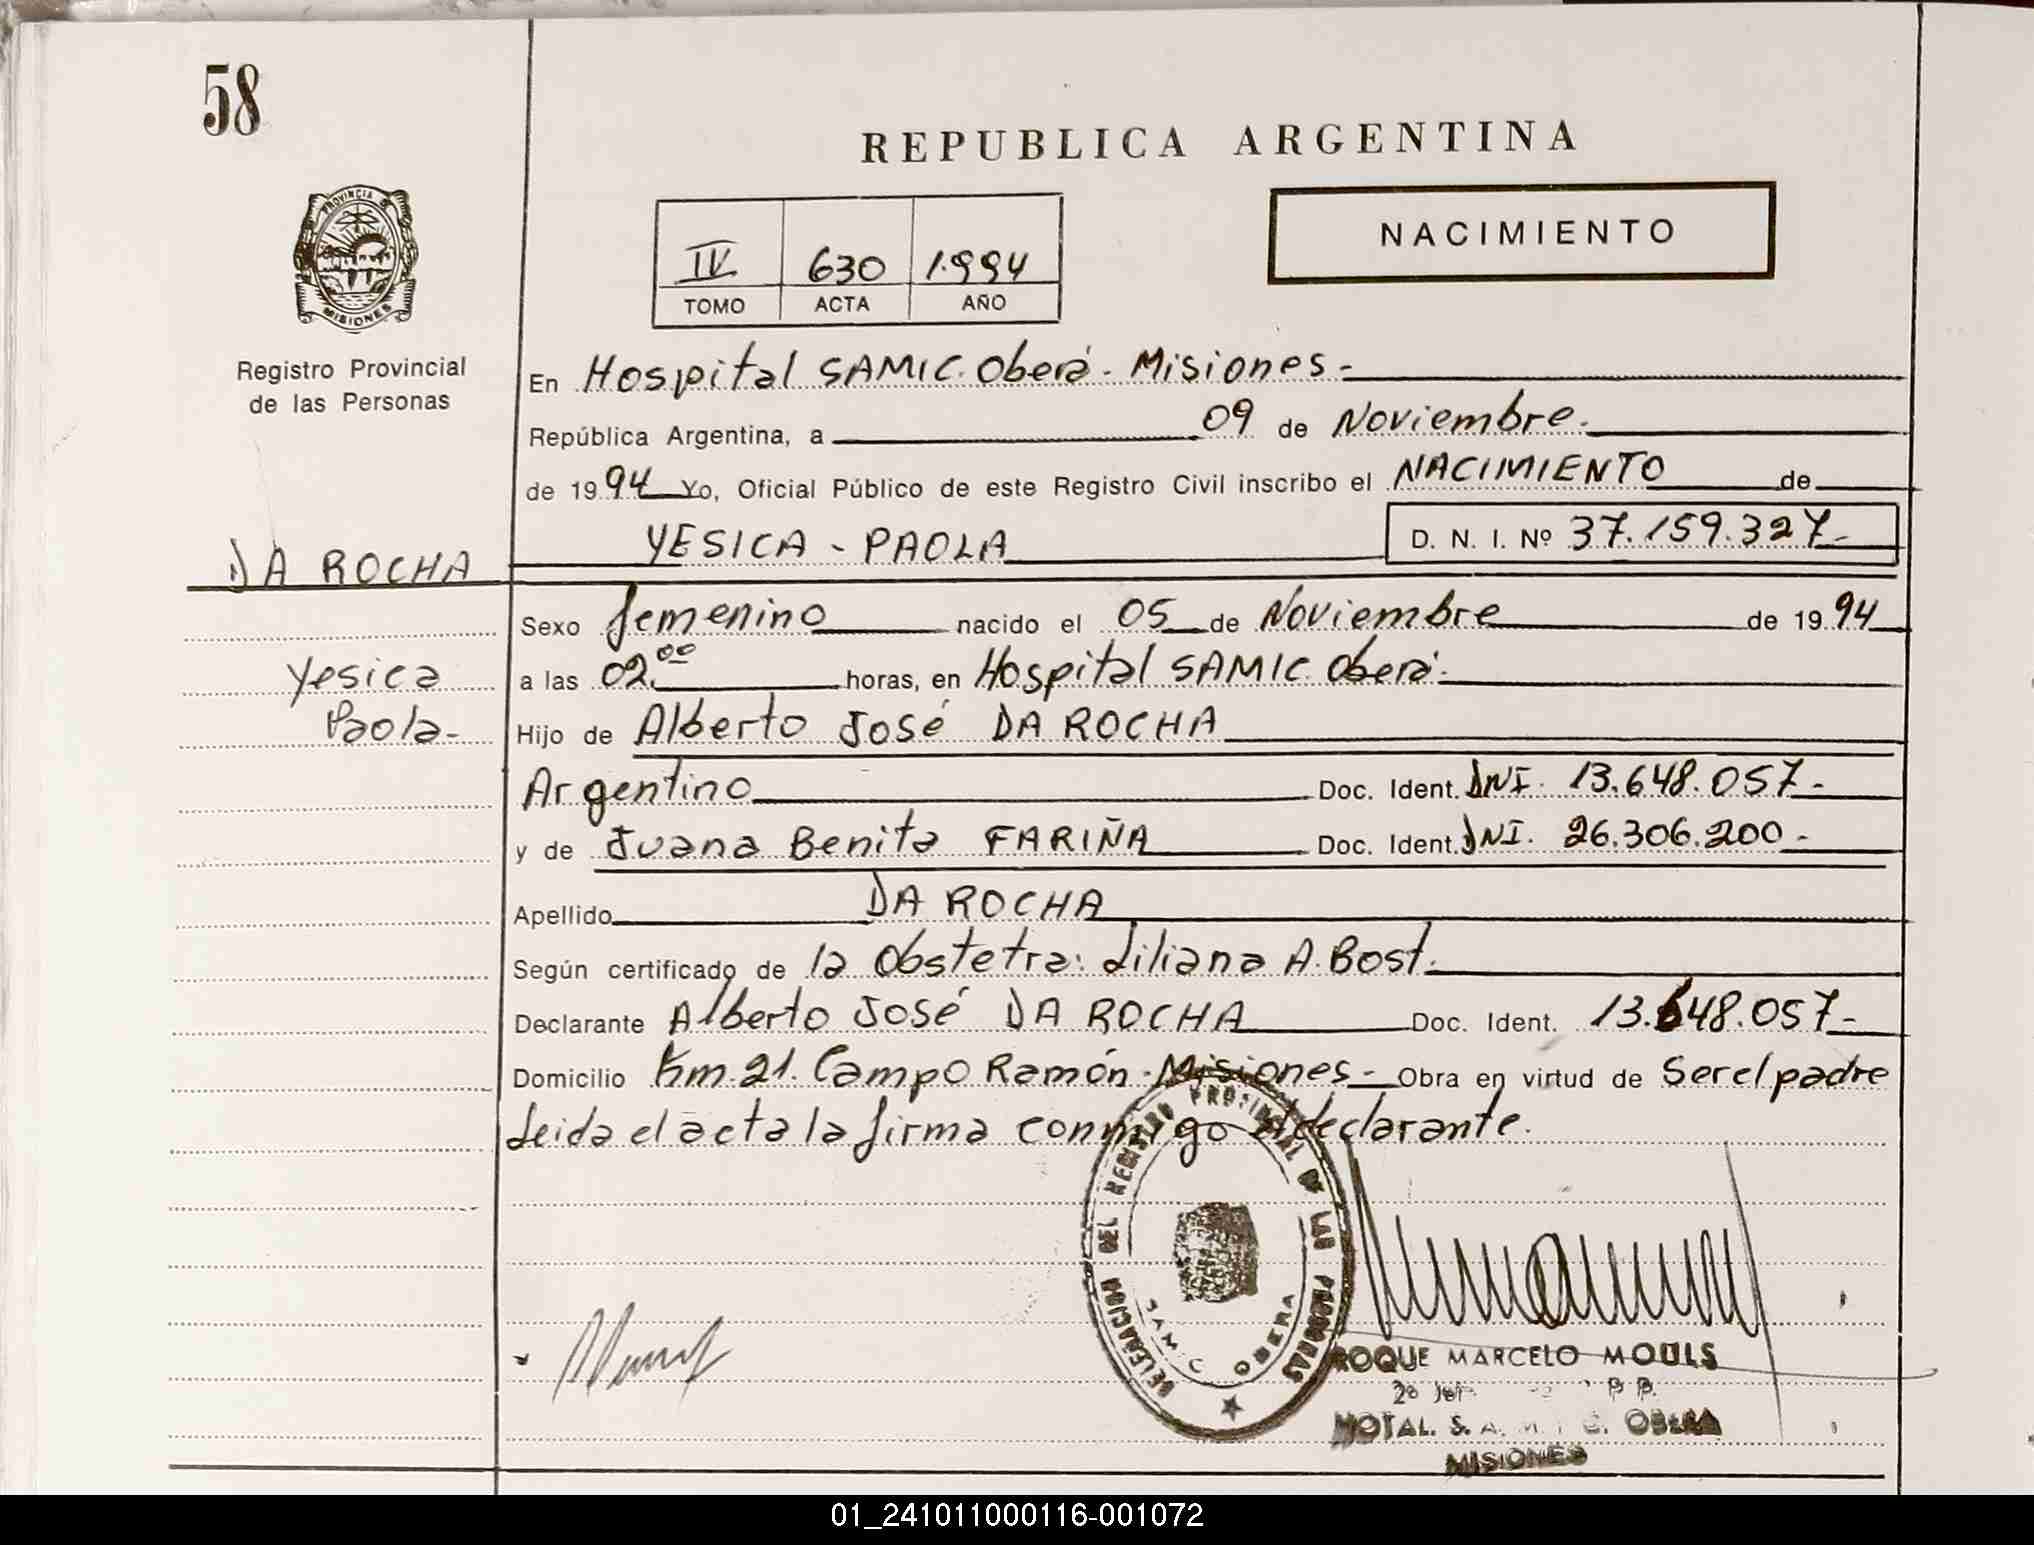 58
REPUBLICA ARGENTINA
PROVINCIA D
MISIONES
Registro Provincial
de las Personas
IV 630 1.994
TOMO ACTA AÑO
NACIMIENTO
En Hospital SAMIC. Oberá - Misiones -
República Argentina, a 09 de Noviembre.
de 1994 Yo, Oficial Público de este Registro Civil inscribo el NACIMIENTO de
YESICA - PAOLA D. N. I. Nº 37.159.327-
DA ROCHA
Sexo femenino nacido el 05 de Noviembre de 1994
Yesica
Paola-
a las 02.00 horas, en Hospital SAMIC. Oberá.
Hijo de Alberto José DA ROCHA
Argentino Doc. Ident. DNI. 13.648.057-
y de Juana Benita FARIÑA Doc. Ident. DNI. 26.306.200-
Apellido DA ROCHA
Según certificado de la Obstetra: Liliana A. Bost.
Declarante Alberto José DA ROCHA Doc. Ident. 13.648.057-
Domicilio Km. 21. Campo Ramón - Misiones - Obra en virtud de Ser el padre
Leida el acta la firma conmigo el declarante.
DELEGACION DEL REGISTRO PROVINCIAL DE LAS PERSONAS
SAMIC OBERA
ROQUE MARCELO MOULS
S. A. M. I. C. OBERA
MISIONES
01_241011000116-001072